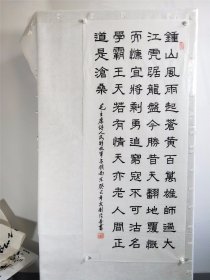 鍾山風雨起蒼黄百萬雄師過大
江虎踞龍盤今勝昔天翻地覆慨
而慷宜將剩勇追窮寇不可沽名
學霸王天若有情天亦老人間正
道是滄桑
毛主席詩人民解放軍占領南京